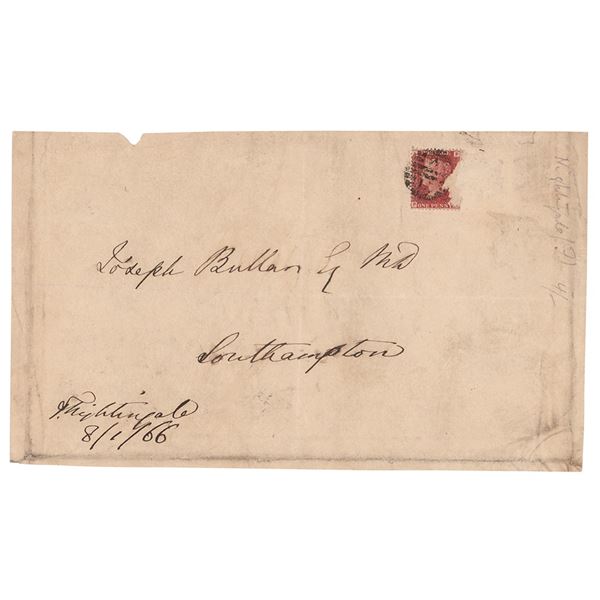 ONE PENNY
Joseph Bullar Esq MD
Southampton
F. Nightingale
8/1/66
Nightingale (F)